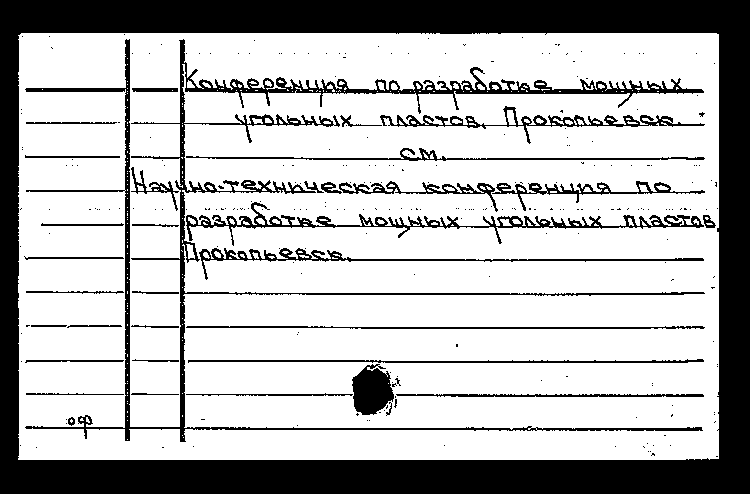 Конференция по разработке мощных
угольных пластов. Прокопьевск.
см.
Научно-техническая конференция по
разработке мощных угольных пластов
Прокопьевск.
оф